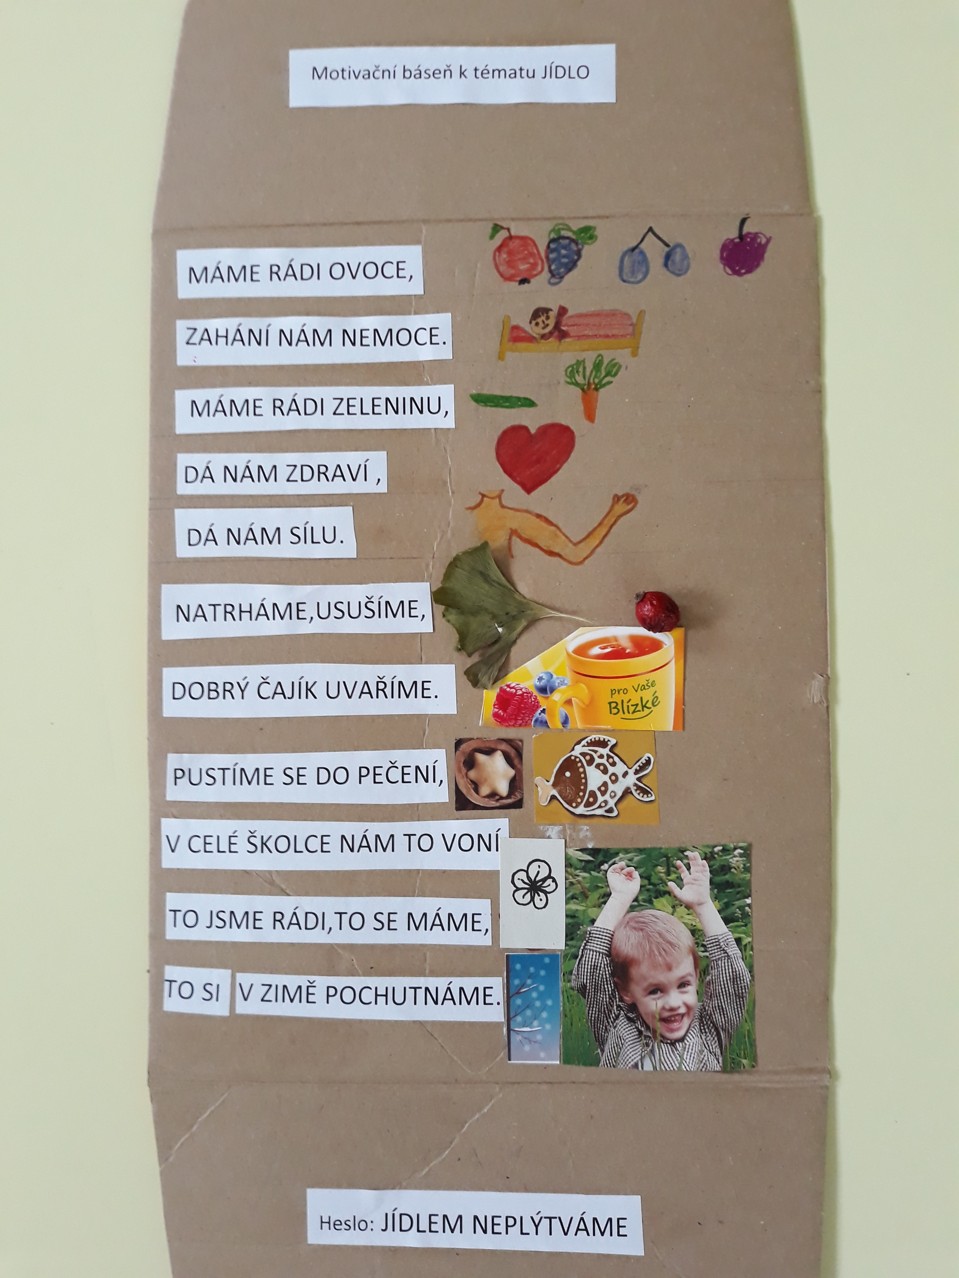 Motivační báseň k tématu JÍDLO
MÁME RÁDI OVOCE,
ZAHÁNÍ NÁM NEMOCE.
MÁME RÁDI ZELENINU,
DÁ NÁM ZDRAVÍ ,
DÁ NÁM SÍLU.
NATRHÁME,USUŠÍME,
DOBRÝ ČAJÍK UVAŘÍME.
pro Vaše
Blízké
PUSTÍME SE DO PEČENÍ,
V CELÉ ŠKOLCE NÁM TO VONÍ
TO JSME RÁDI,TO SE MÁME,
TO SI V ZIMĚ POCHUTNÁME.
Heslo: JÍDLEM NEPLÝTVÁME